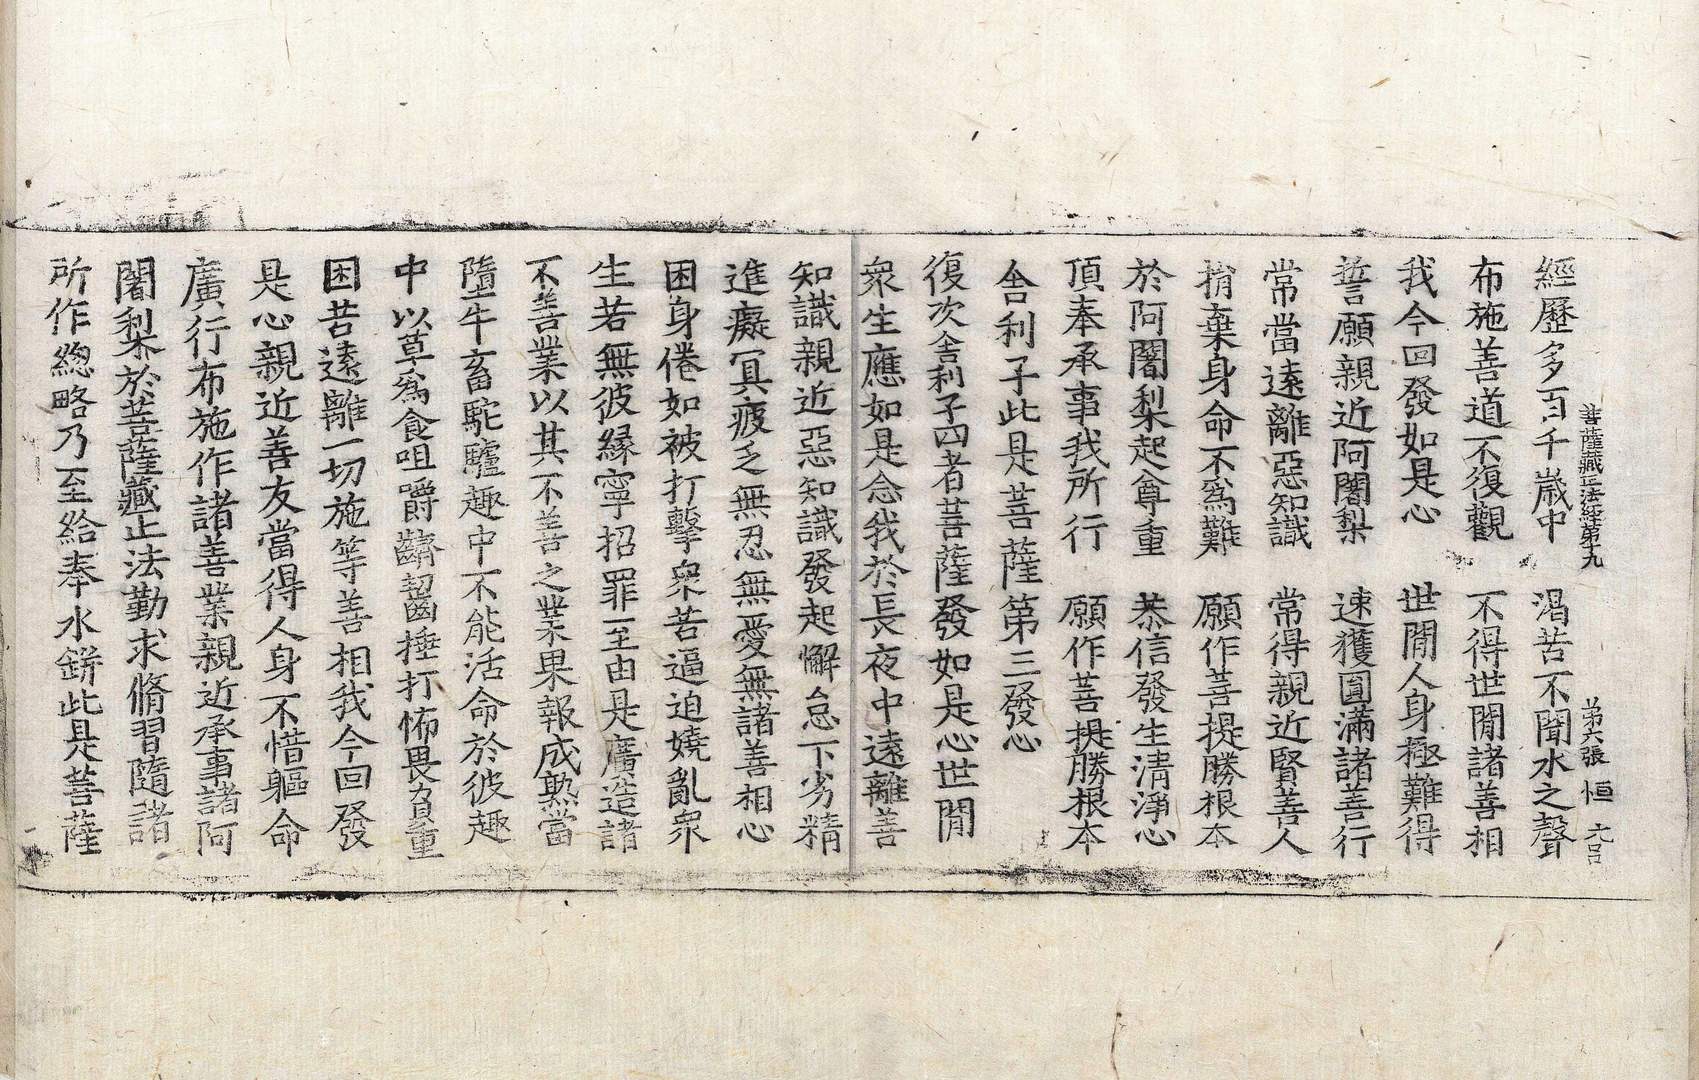 菩薩藏正法經第十九　第六張　恒
經歷多百千歲中　渴苦不聞水之聲
布施善道不復觀　不得世間諸善相
我今回發如是心　世間人身極難得
誓願親近阿闍梨　速獲圓滿諸善行
常當遠離惡知識　常得親近賢善人
捎棄身命不爲難　願作菩提勝根本
於阿闍梨起尊重　恭信發生清淨心
頂奉承事我所行　願作菩提勝根本
舍利子此是菩薩第三發心
復次舍利子四者菩薩發如是心世間
衆生應如是念我於長夜中遠離善
知識親近惡知識發起懈怠下劣精
進癡冥疲乏無忍無愛無諸善相心
困身倦如被打擊衆苦逼迫嬈亂衆
生若無彼緣寧招罪至由是廣造諸
不善業以其不善之業果報成熟當
墮牛畜駝驢趣中不能活命於彼趣
中以草爲食咀嚼齩齧捶打怖畏負重
困苦遠離一切施等善相我今回發
是心親近善友當得人身不惜軀命
廣行布施作諸善業親近承事諸阿
闍梨於菩薩藏正法勤求脩習隨諸
所作緫略乃至給奉水缾此是菩薩